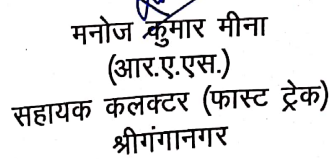 मनोज कुमार मीना
(आर.ए.एस.)
सहायक कलक्टर (फास्ट ट्रेक)
श्रीगंगानगर